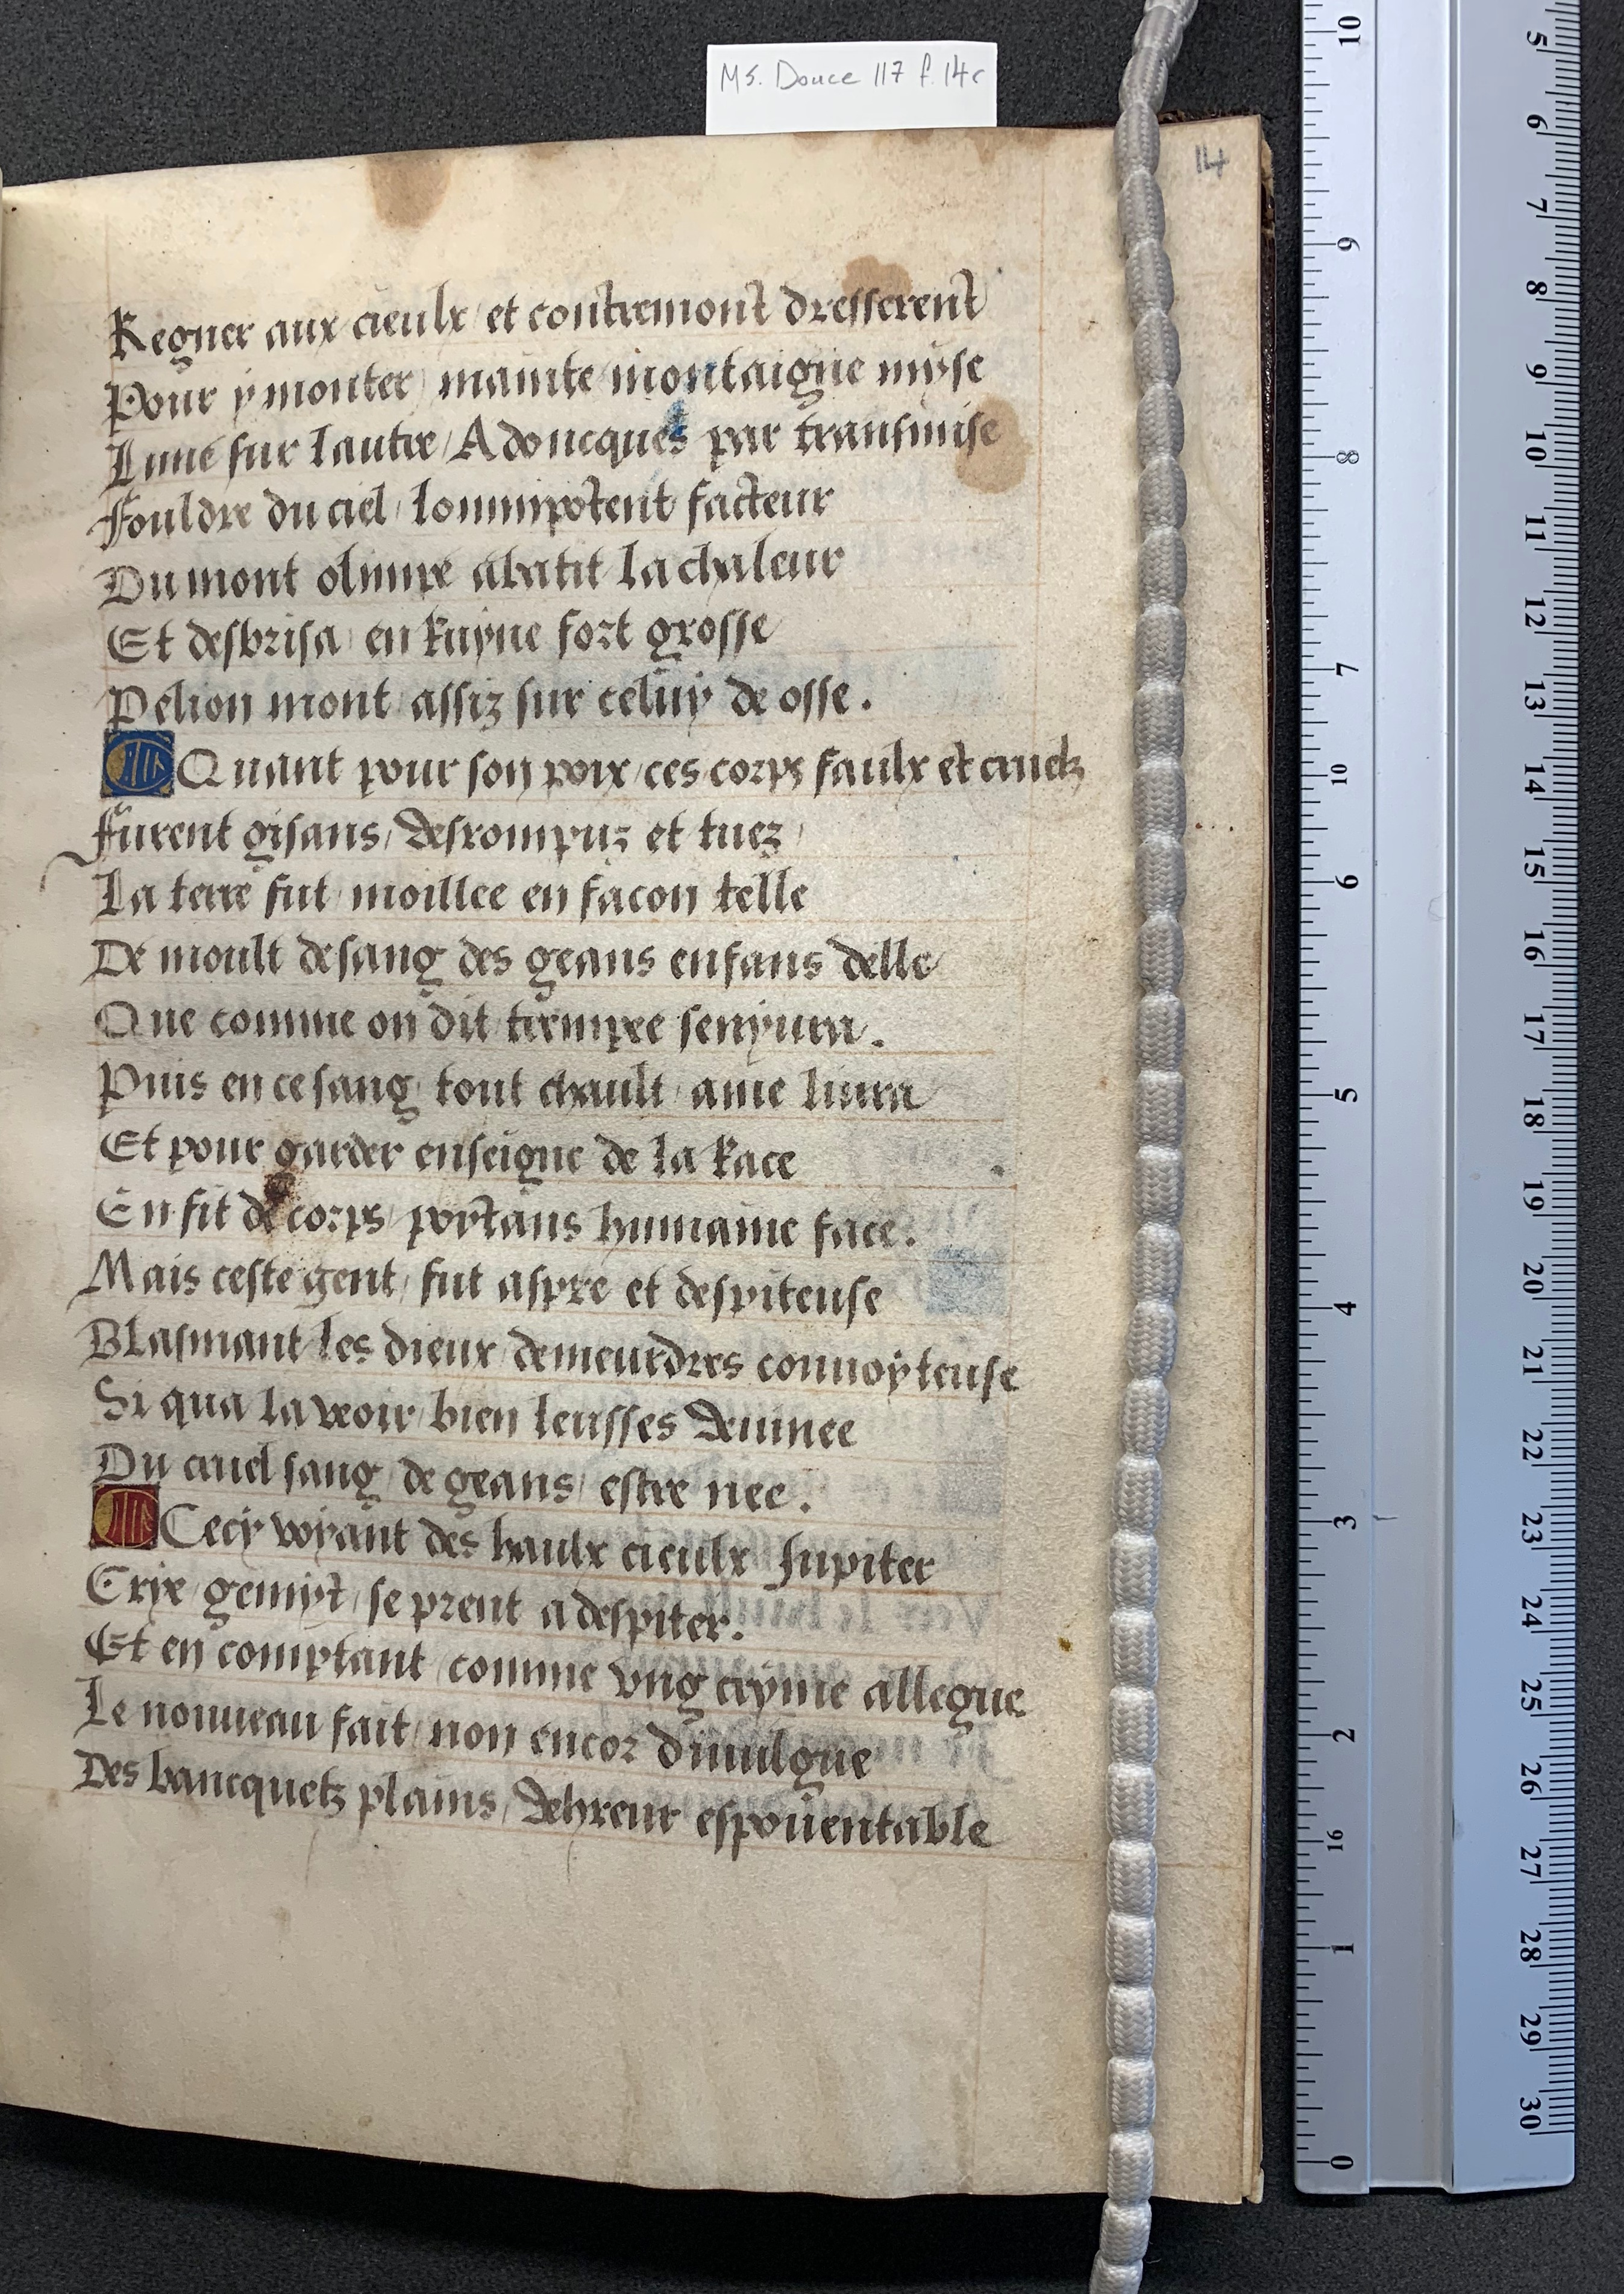 MS. Douce 117 f. 14r
14
Regner aux cieulx / et contremont dresserent
Pour y monter / mainte montaigne myse
Lune sur lautre / Adoncques par transmise
Fouldre du ciel / lomnipotent facteur
Du mont olimpe abatit la chaleur
Et desbrisa / en Ruyne fort grosse
Pelion mont / assiz sur celuy de osse.
Quant pour son poix / ces corps faulx et cruelz
Furent gisans / desrompuz et tuez /
La terre fut / moillee en facon telle
De moult de sang des geans enfans delle
Que comme on dit trempee senyura.
Puis en ce sang / tout chault / ame liura
Et pour garder enseigne de la Race
En fit de corps / portans humaine face.
Mais ceste gent / fut aspre et despiteuse
Blasmant les dieux / de meurdres conuoyteuse
Si qua la veoir / bien leusses deuinee
Du cruel sang / de geans / estre nee.
Cecy voyant des haulx cieulx Jupiter
Crye / gemyt / se prent a despiter.
Et en comptant / comme vng cryme allegue
Le nouueau fait / non encor diuulgue
Des bancquetz plains / dehreur espouentable
10
9
8
7
6
5
4
3
2
1
0
10
16
5
6
7
8
9
10
11
12
13
14
15
16
17
18
19
20
21
22
23
24
25
26
27
28
29
30